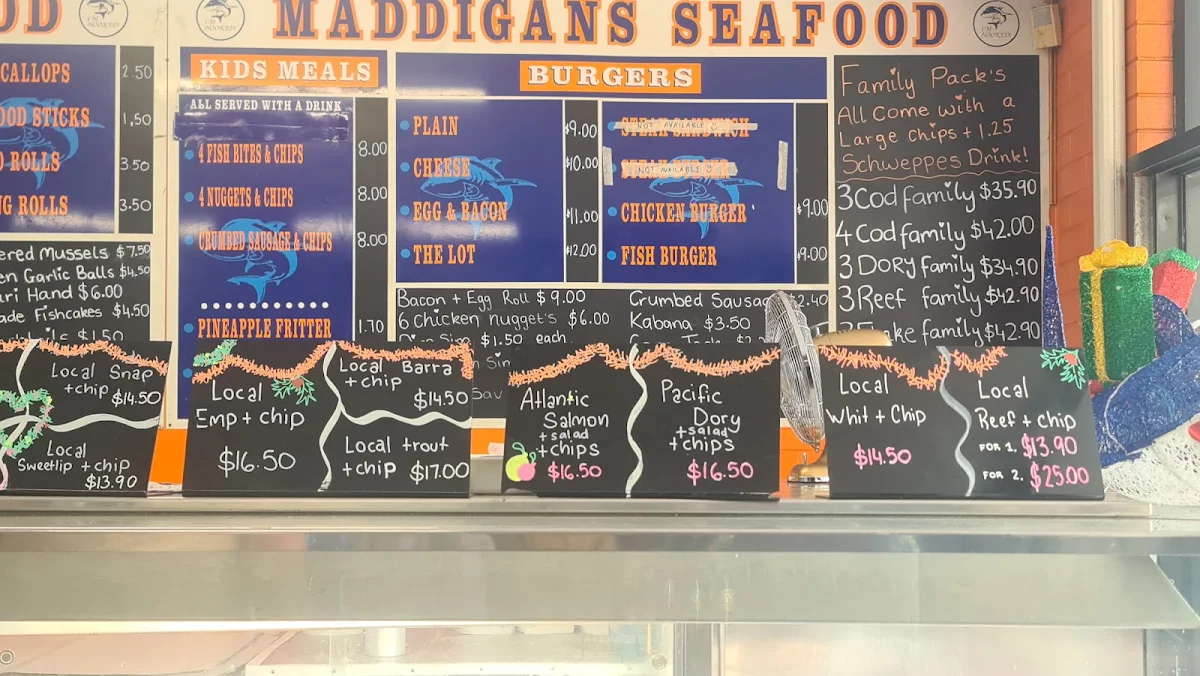 MADDIGANS SEAFOOD
CALLOPS 2.50
OOD STICKS 1.50
ROLLS 3.50
NG ROLLS 3.50
ered Mussels $7.50
en Garlic Balls $4.50
ari Hand $6.00
ade Fishcakes $4.50
$1.50
KIDS MEALS
ALL SERVED WITH A DRINK
4 FISH BITES & CHIPS 8.00
4 NUGGETS & CHIPS 8.00
CRUMBED SAUSAGE & CHIPS 8.00
PINEAPPLE FRITTER 1.70
BURGERS
PLAIN $9.00
CHEESE $10.00
EGG & BACON $11.00
THE LOT $12.00
STEAK SANDWICH
NOT AVAILABLE
STEAK BURGER
NOT AVAILABLE
CHICKEN BURGER $9.00
FISH BURGER $9.00
Bacon + Egg Roll $9.00
6 Chicken nugget's $6.00
Dim Sim $1.50 each
Sim
Sav
Crumbed Sausag $2.40
Kabana $3.50
Family Pack's
All Come with a
Large chips + 1.25
Schweppes Drink!
3 Cod family $35.90
4 Cod family $42.00
3 DORY family $34.90
3 Reef family $42.90
ke family $42.90
Local Snap
+chip $14.50
Local
Sweetlip +chip
$13.90
Local
Emp + chip
$16.50
Local Barra
+ chip
$14.50
Local trout
+ chip $17.00
Atlantic
Salmon
+ salad
+chips
$16.50
Pacific
Dory
+ salad
+chips
$16.50
Local
Whit + Chip
$14.50
Local
Reef + chip
FOR 1. $13.90
FOR 2. $25.00